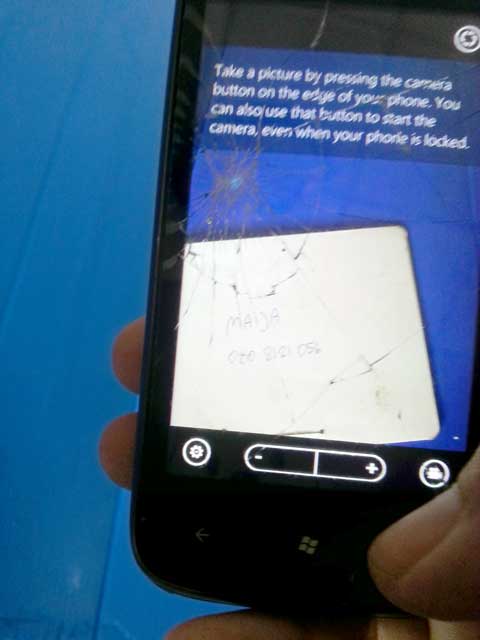 Take a picture by pressing the camera
button on the edge of your phone. You
can also use that button to start the
camera, even when your phone is locked.
MAIJA
020 8121 056